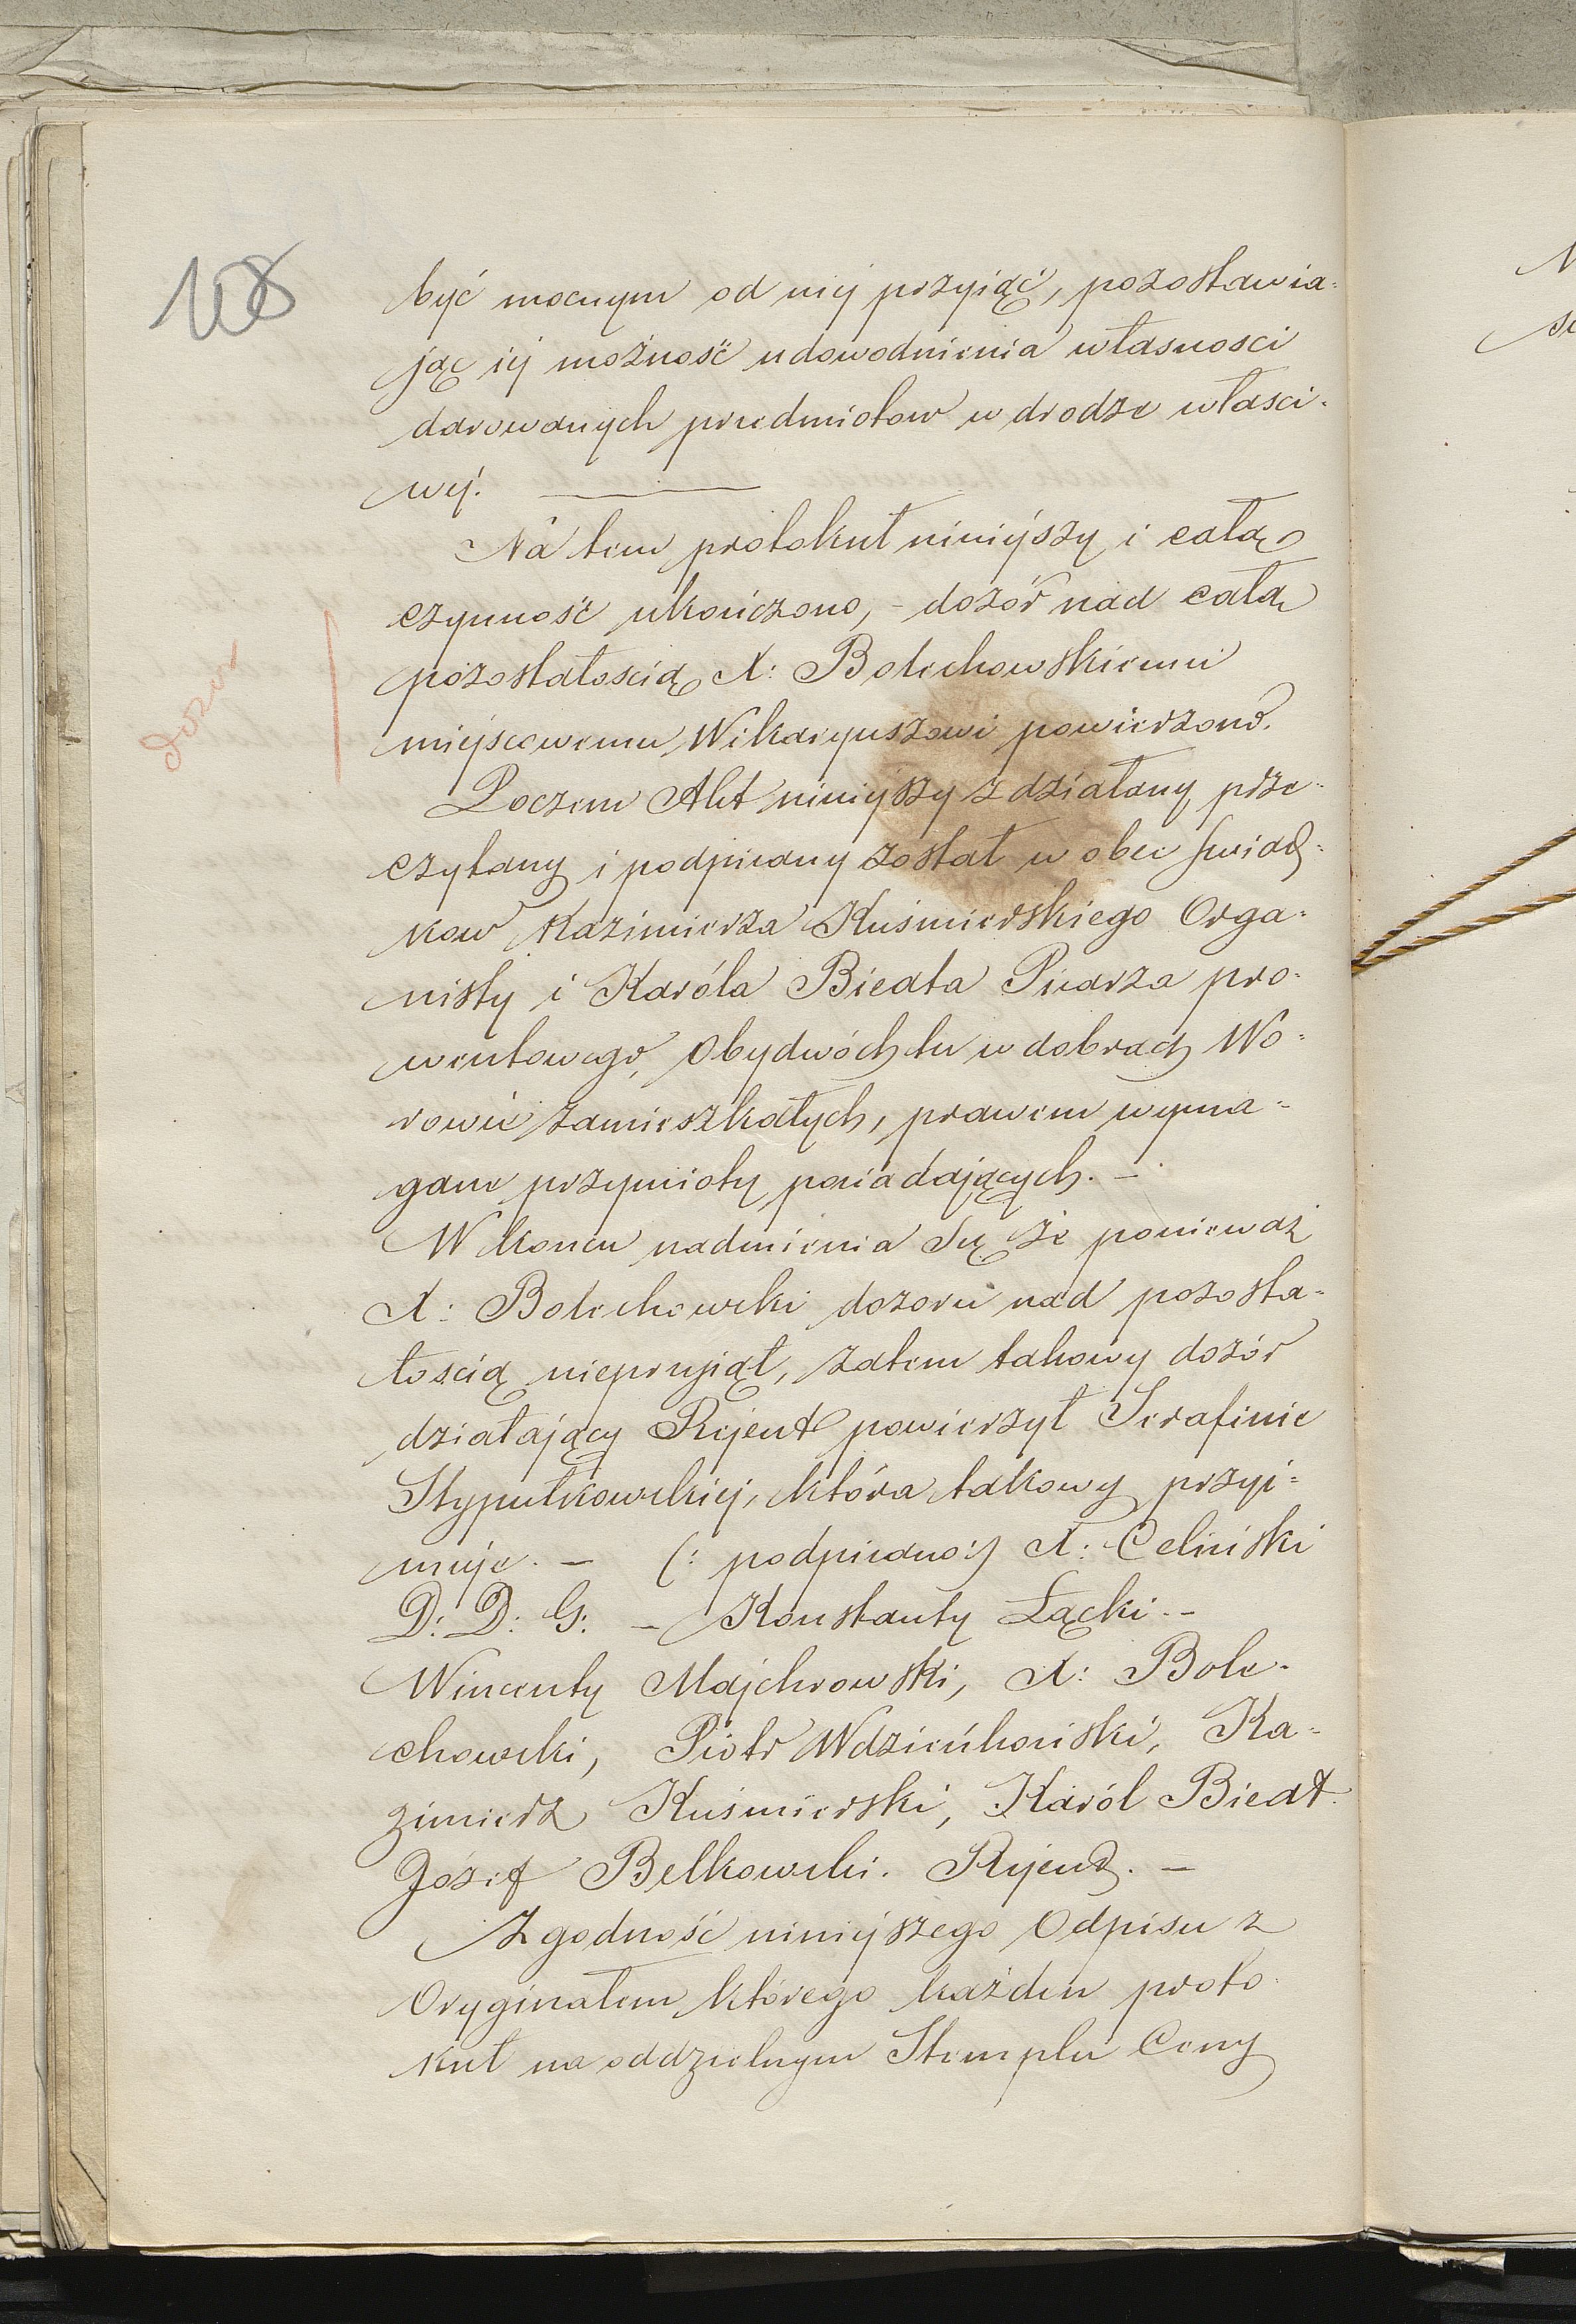 108
być mocnym od niej przyiąć, pozostawia-
jąc iej możność udowodnienia własnosci
darowanych przedmiotow w drodze właści-
wej. —
Na tem protokuł niniejszy i całą
czynność ukończono, - dozór nad całą
pozostałością X: Bolechowskiemu
miejscowemu Wikaryuszowi powierzono.
dozor
Poczem Akt niniejszy zdziałany prze-
czytany i podpisany został w obec świad-
kow Kazimierza Kuśmierskiego Orga-
nisty i Karóla Biedta Pisarza pro-
wentowego, Obydwóch tu w dobrach Wo-
rowie zamieszkałych, prawem wyma-
gane przymioty posiadających. -
W koncu nadmienia się że ponieważ
X: Bolechowski dozoru nad pozosta-
łością nieprzyjął, zatem takowy dozór
działający Rejent powierzył Serafinie
Stypułkowskiej, która takowy przyi-
muje. - (: podpisano:) X: Celiński
D: D: G: - Konstanty Łącki. -
Wincenty Majchrowski, X: Bole-
chowski, Piotr Wdzieńkoński, Ka-
zimierz Kuśmierski, Karól Biedt.
Józef Bełkowski. Rejent. -
Zgodność niniejszego Odpisu z
Oryginałem którego każden proto-
kuł na oddzielnym Stemplu Ceny